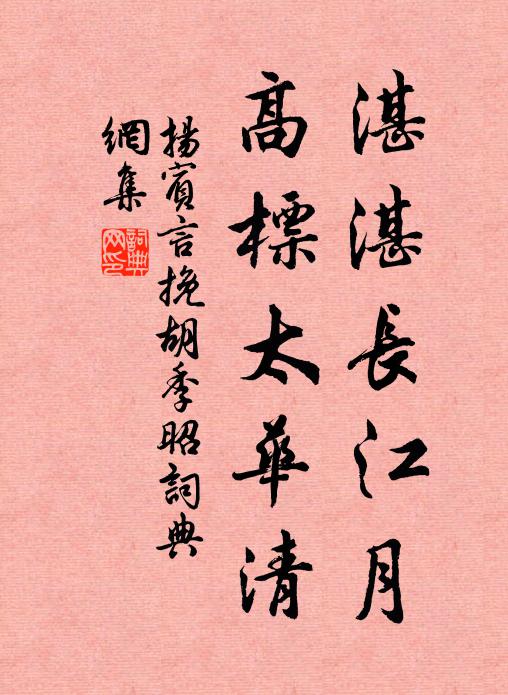 湛湛長江月
高標太華清
揚賓言挽胡季昭詞典
網集
詞典
网印